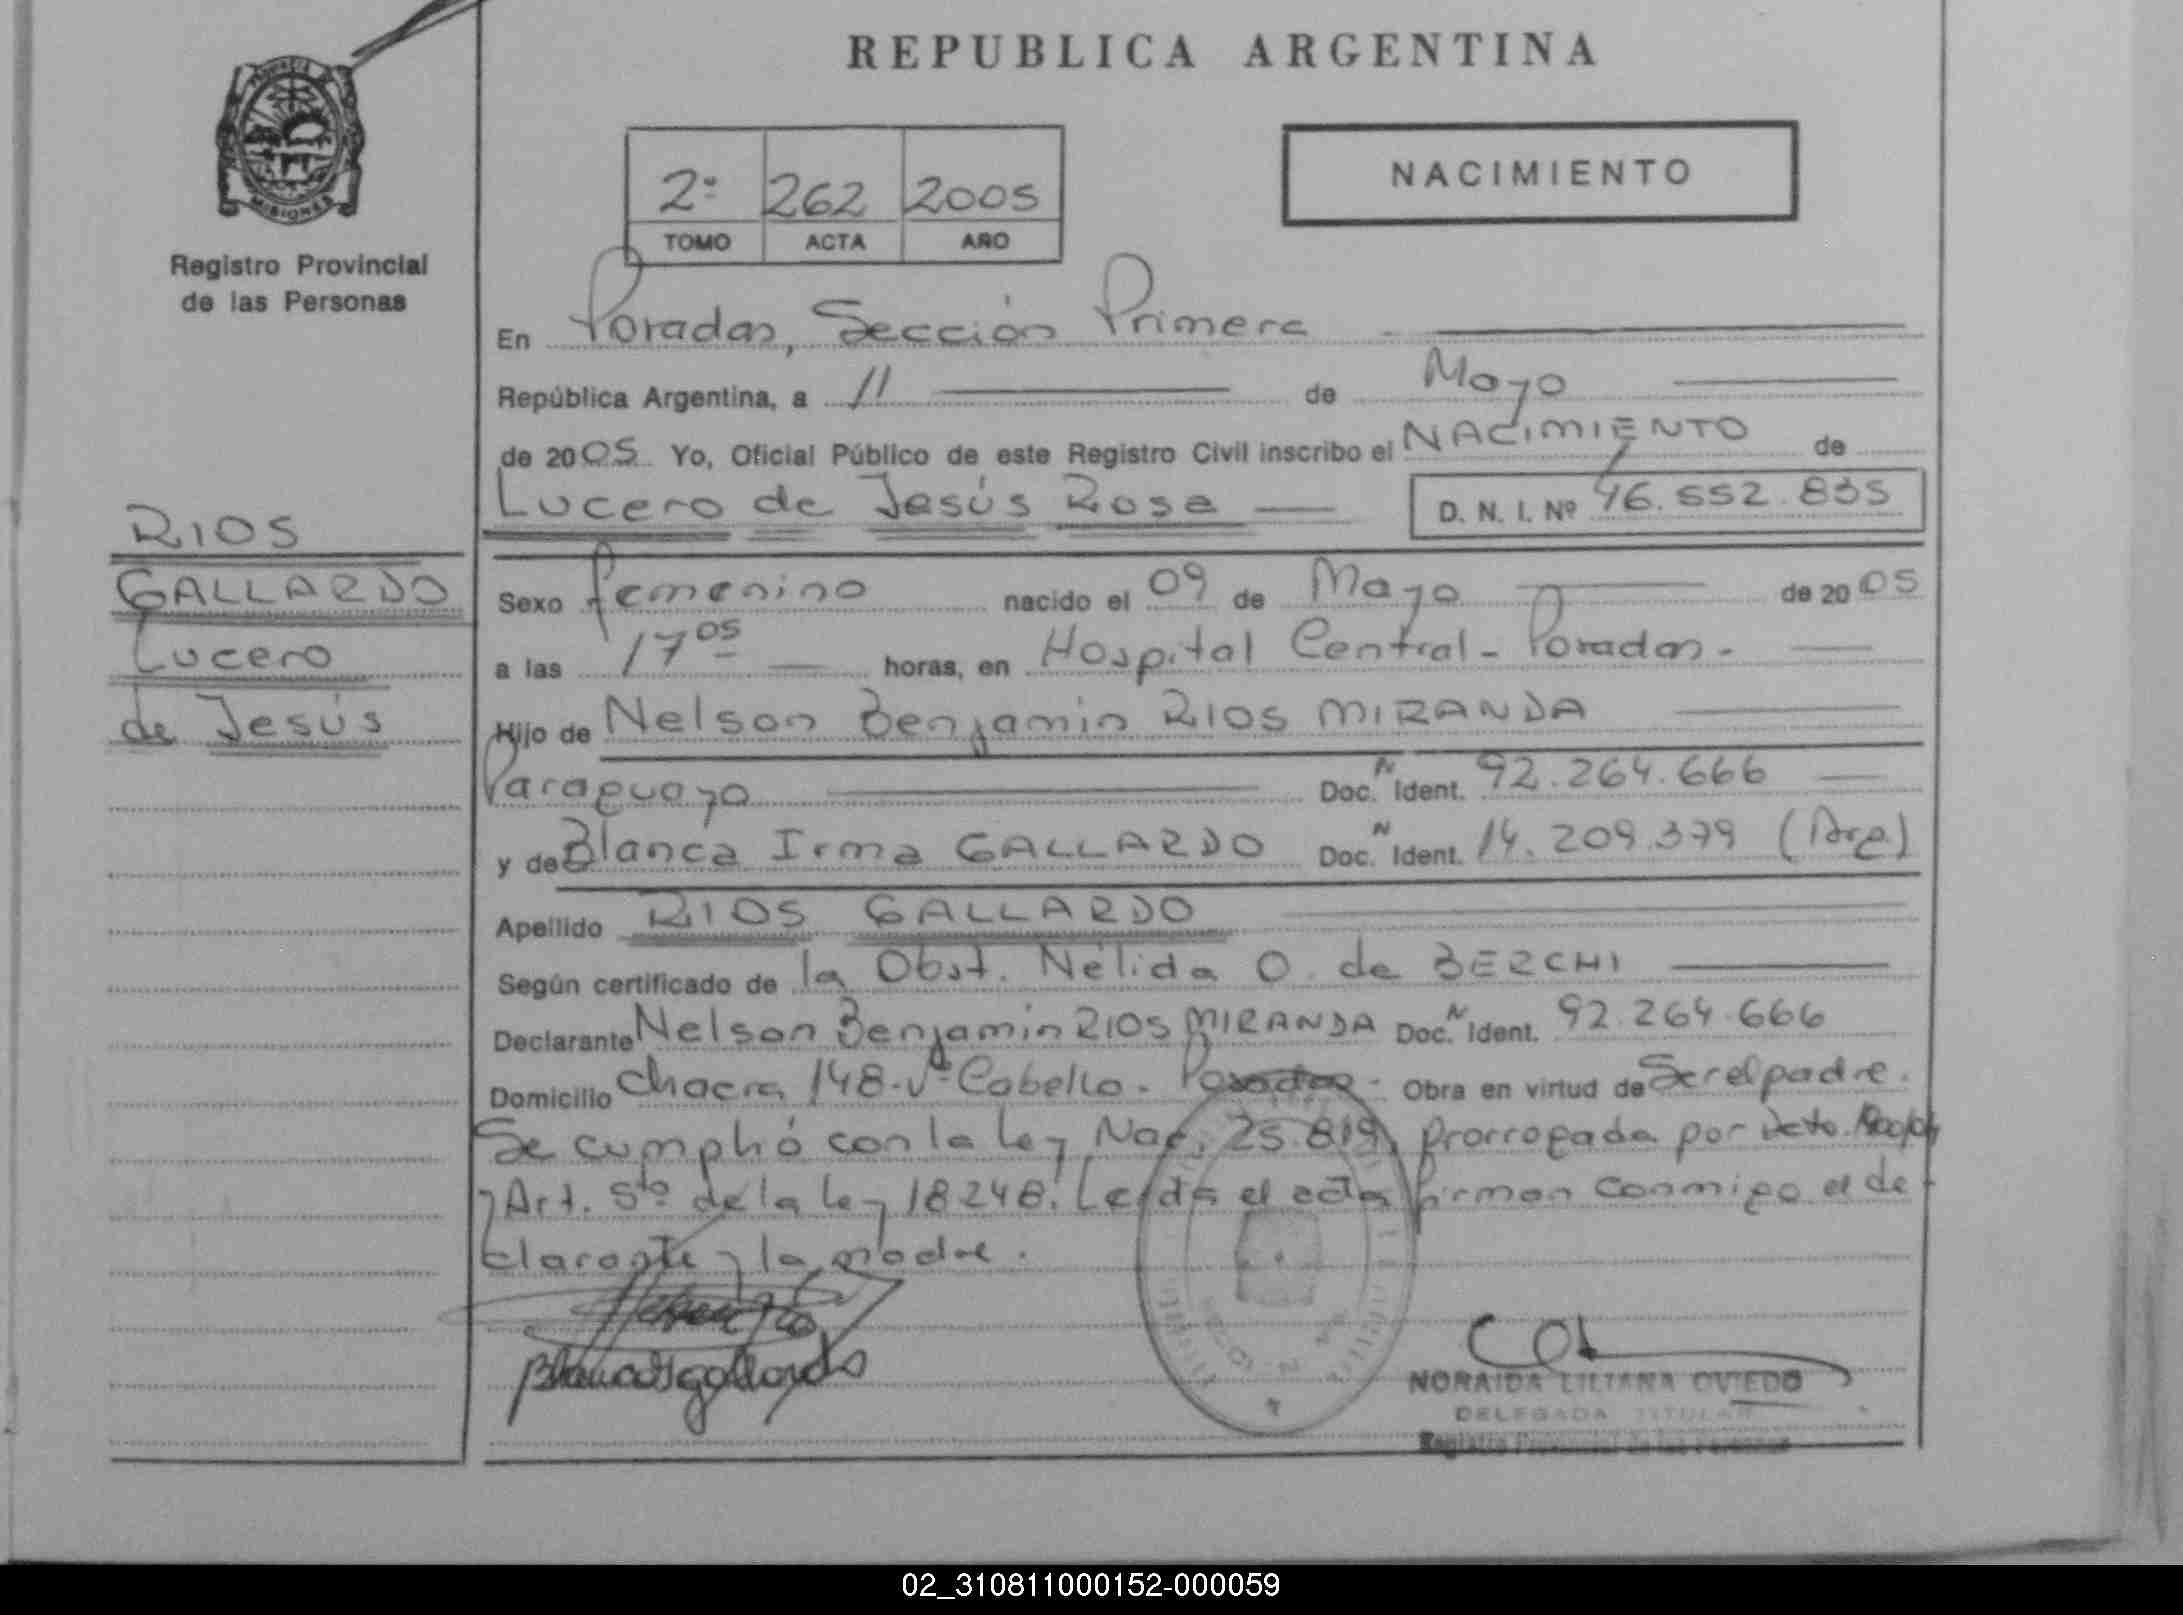 REPUBLICA ARGENTINA
PROVINCIA DE
MISIONES
Registro Provincial
de las Personas
2º 262 2005
TOMO ACTA AÑO
NACIMIENTO
En Posadas, Sección Primera
República Argentina, a 11 de Mayo
de 2005 Yo, Oficial Público de este Registro Civil inscribo el NACIMIENTO de
Lucero de Jesús Rosa D. N. I. Nº 46.552.835
RIOS
GALLARDO
Lucero
de Jesús
Sexo femenino nacido el 09 de Mayo de 2005
a las 17 05 horas, en Hospital Central - Posadas -
Hijo de Nelson Benjamin RIOS MIRANDA
Paraguayo Doc. N Ident. 92.264.666
y de Blanca Irma GALLARDO Doc. N Ident. 14.209.379 (Arg.)
Apellido RIOS GALLARDO
Según certificado de la Obst. Nélida O. de BERCHI
Declarante Nelson Benjamin RIOS MIRANDA Doc. N Ident. 92.264.666
Domicilio Chacra 148 - Vª Cabello - Posadas - Obra en virtud de Ser el padre.
Se cumplió con la ley Nac. 25.819, prorrogada por Dcto.
y Art. 5to de la ley 18248. Leída el acta firman conmigo el de-
clarante y la madre.
NORAIDA LILIANA OVIEDO
DELEGADA TITULAR
Registro Provincial de las Personas
02_310811000152-000059